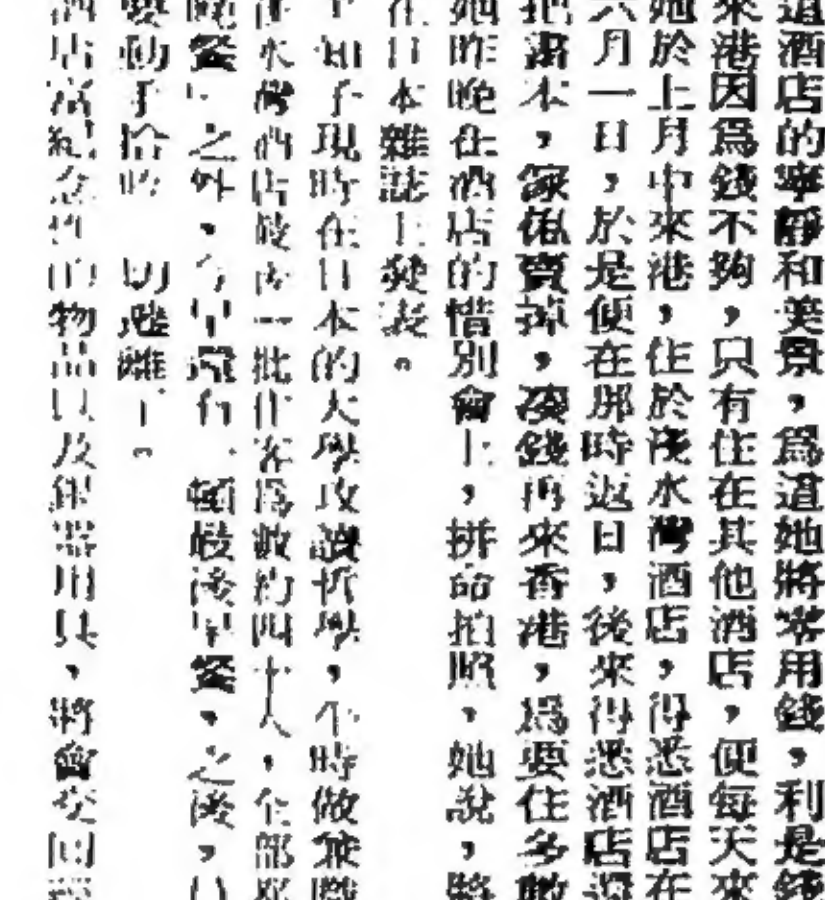 道酒店的寧靜和美景，為道她將零用錢，利是錢
來港因為錢不夠，只有住在其他酒店，便每天來
她於上月中來港，住於淺水灣酒店，得悉酒店在
六月一日，於是便在那時返日，後來得悉酒店還
把書本，傢俬賣掉，湊錢再來香港，為要住多數
她昨晚在酒店的惜別會上，拼命拍照，她說，將
在日本雜誌上發表。
子現時在日本的大學攻讀哲學，不時做兼職
淺水灣酒店最後一批住客為數約四十人，全部
晚餐」之外，今早還有 頓最後早餐。之後，
要動手拾 切 離 。
酒店富紀念性的物品以及銀器用具，將會交回